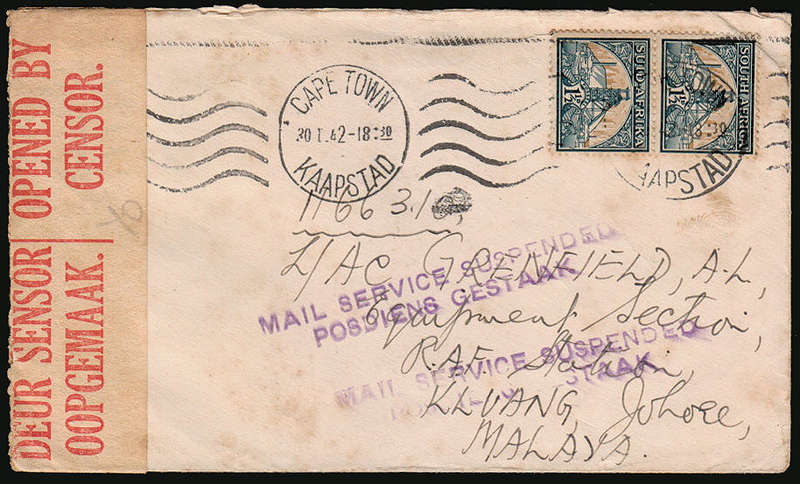 OPENED BY
CENSOR.
DEUR SENSOR
OOPGEMAAK.
CAPE TOWN
30 I 42-18:30
KAAPSTAD
SUID-AFRIKA
1½
SOUTH AFRICA
1½
TOWN
APSTAD
116631
L/AC GREENFIELD, A.L,
Equipment Section,
R.A.F. Station,
KLUANG, Johore,
MALAYA.
MAIL SERVICE SUSPENDED
POSDIENS GESTAAK
MAIL SERVICE SUSPENDED